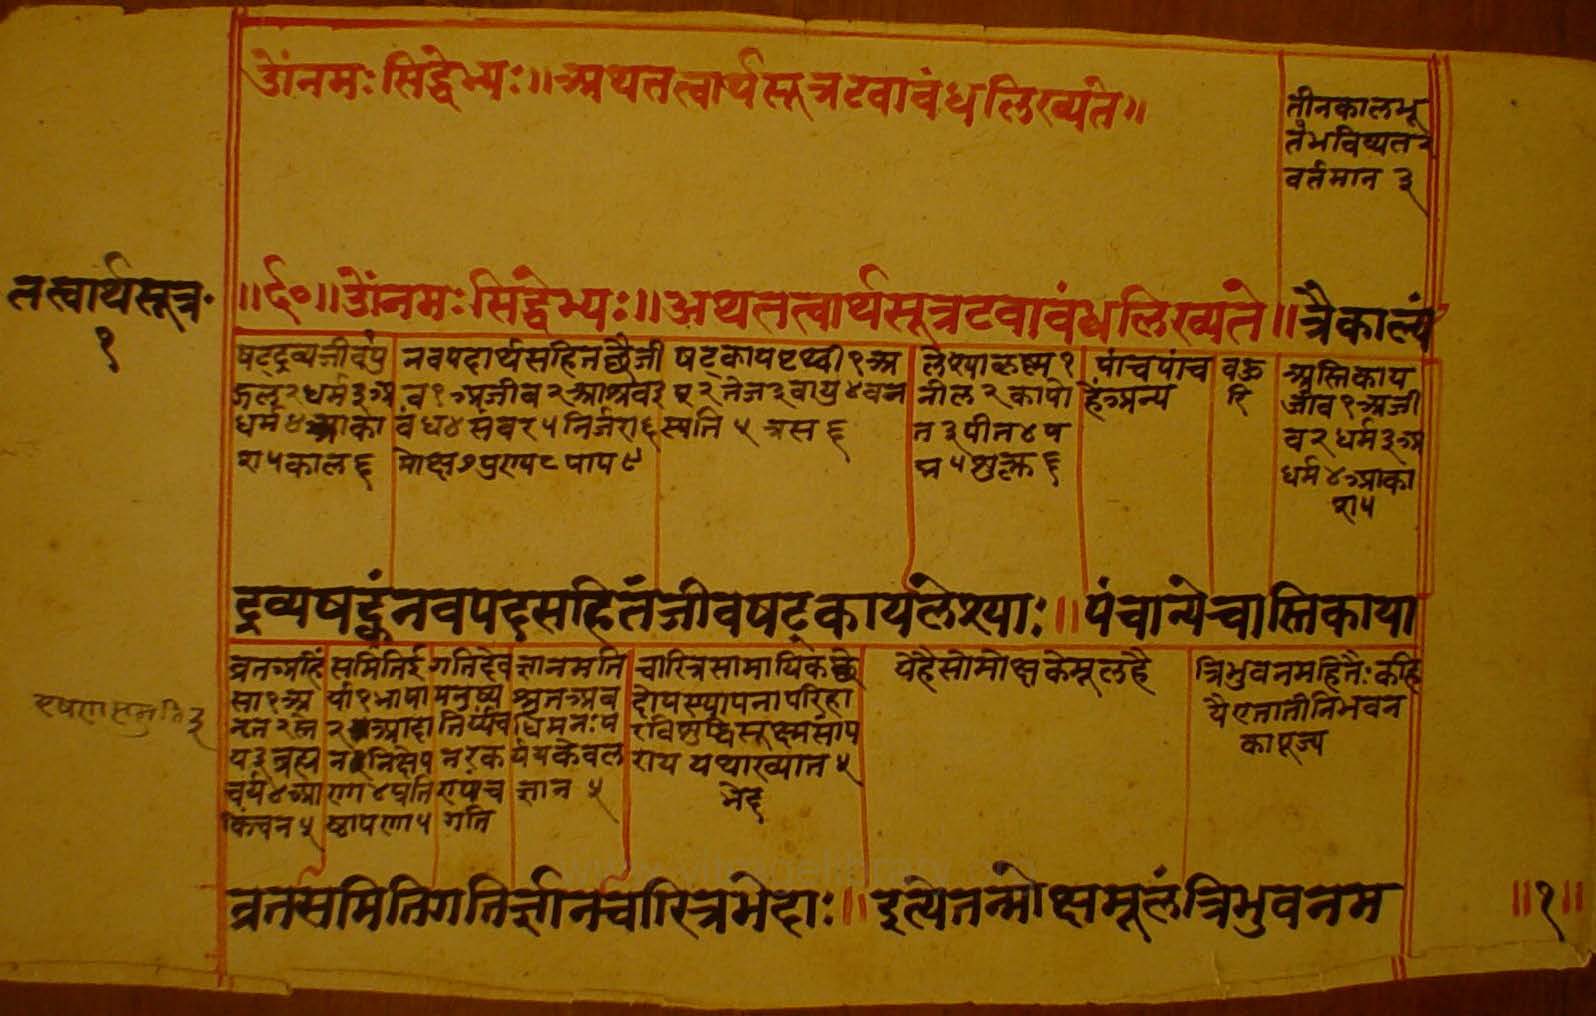 ॐनमःसिद्धेभ्यः॥अथतत्वार्थसूत्रटवावंधलिख्यते॥
तीनकालभू
तभविष्यत२
वर्तमान ३
तत्वार्थसूत्र·
१
॥६०॥ॐनमःसिद्धेभ्यः॥अथतत्वार्थसूत्रटवावंधलिख्यते॥त्रैकाल्यं
षट्द्रव्यजीवपु
द्गल२धर्म३अ
धर्म४आका
श५काल६
नवपदार्थसहितछैजी
व१अजीव२आश्रव३
वंध४संवर५निर्जरा६
मोक्ष७पुराय८पाप९
षट्कायपृथ्वी१अ
प२तेज३वायु४वन
स्पति ५ त्रस ६
लेश्याकृष्म१
नील२कापो
त३पीत४प
द्म५शुक्ल६
पांचपांच
हैंअन्य
अस्तिकाय
जीव१अजी
व२धर्म३अ
धर्म४आका
श५
द्रव्यषट्कंनवपदसहितंजीवषट्कायलेश्याः॥पंचान्येचास्तिकाया
व्रतअहिं
सा१अ
य३ब्रह्म
चर्य४आ
किंचन५
समितिई
र्या१भाषा
गतिदेव
मनुष्य
नरक
गति
ज्ञानमति
र्ययकेवल
ज्ञान ५
चारित्रसामायिकछे
दोपस्थापनापरिहा
रविशुद्धिसूक्ष्मसांप
राय यथाख्यात ५
भेद
येहैसोमोक्षकेमूलहै
त्रिभुवनमहितैःकहि
यैएतातीनिभवन
कापूज्य
व्रतसमितिगतिर्ज्ञानचारित्रभेदाः॥इत्येतन्मोक्षमूलंत्रिभुवनम
॥१॥